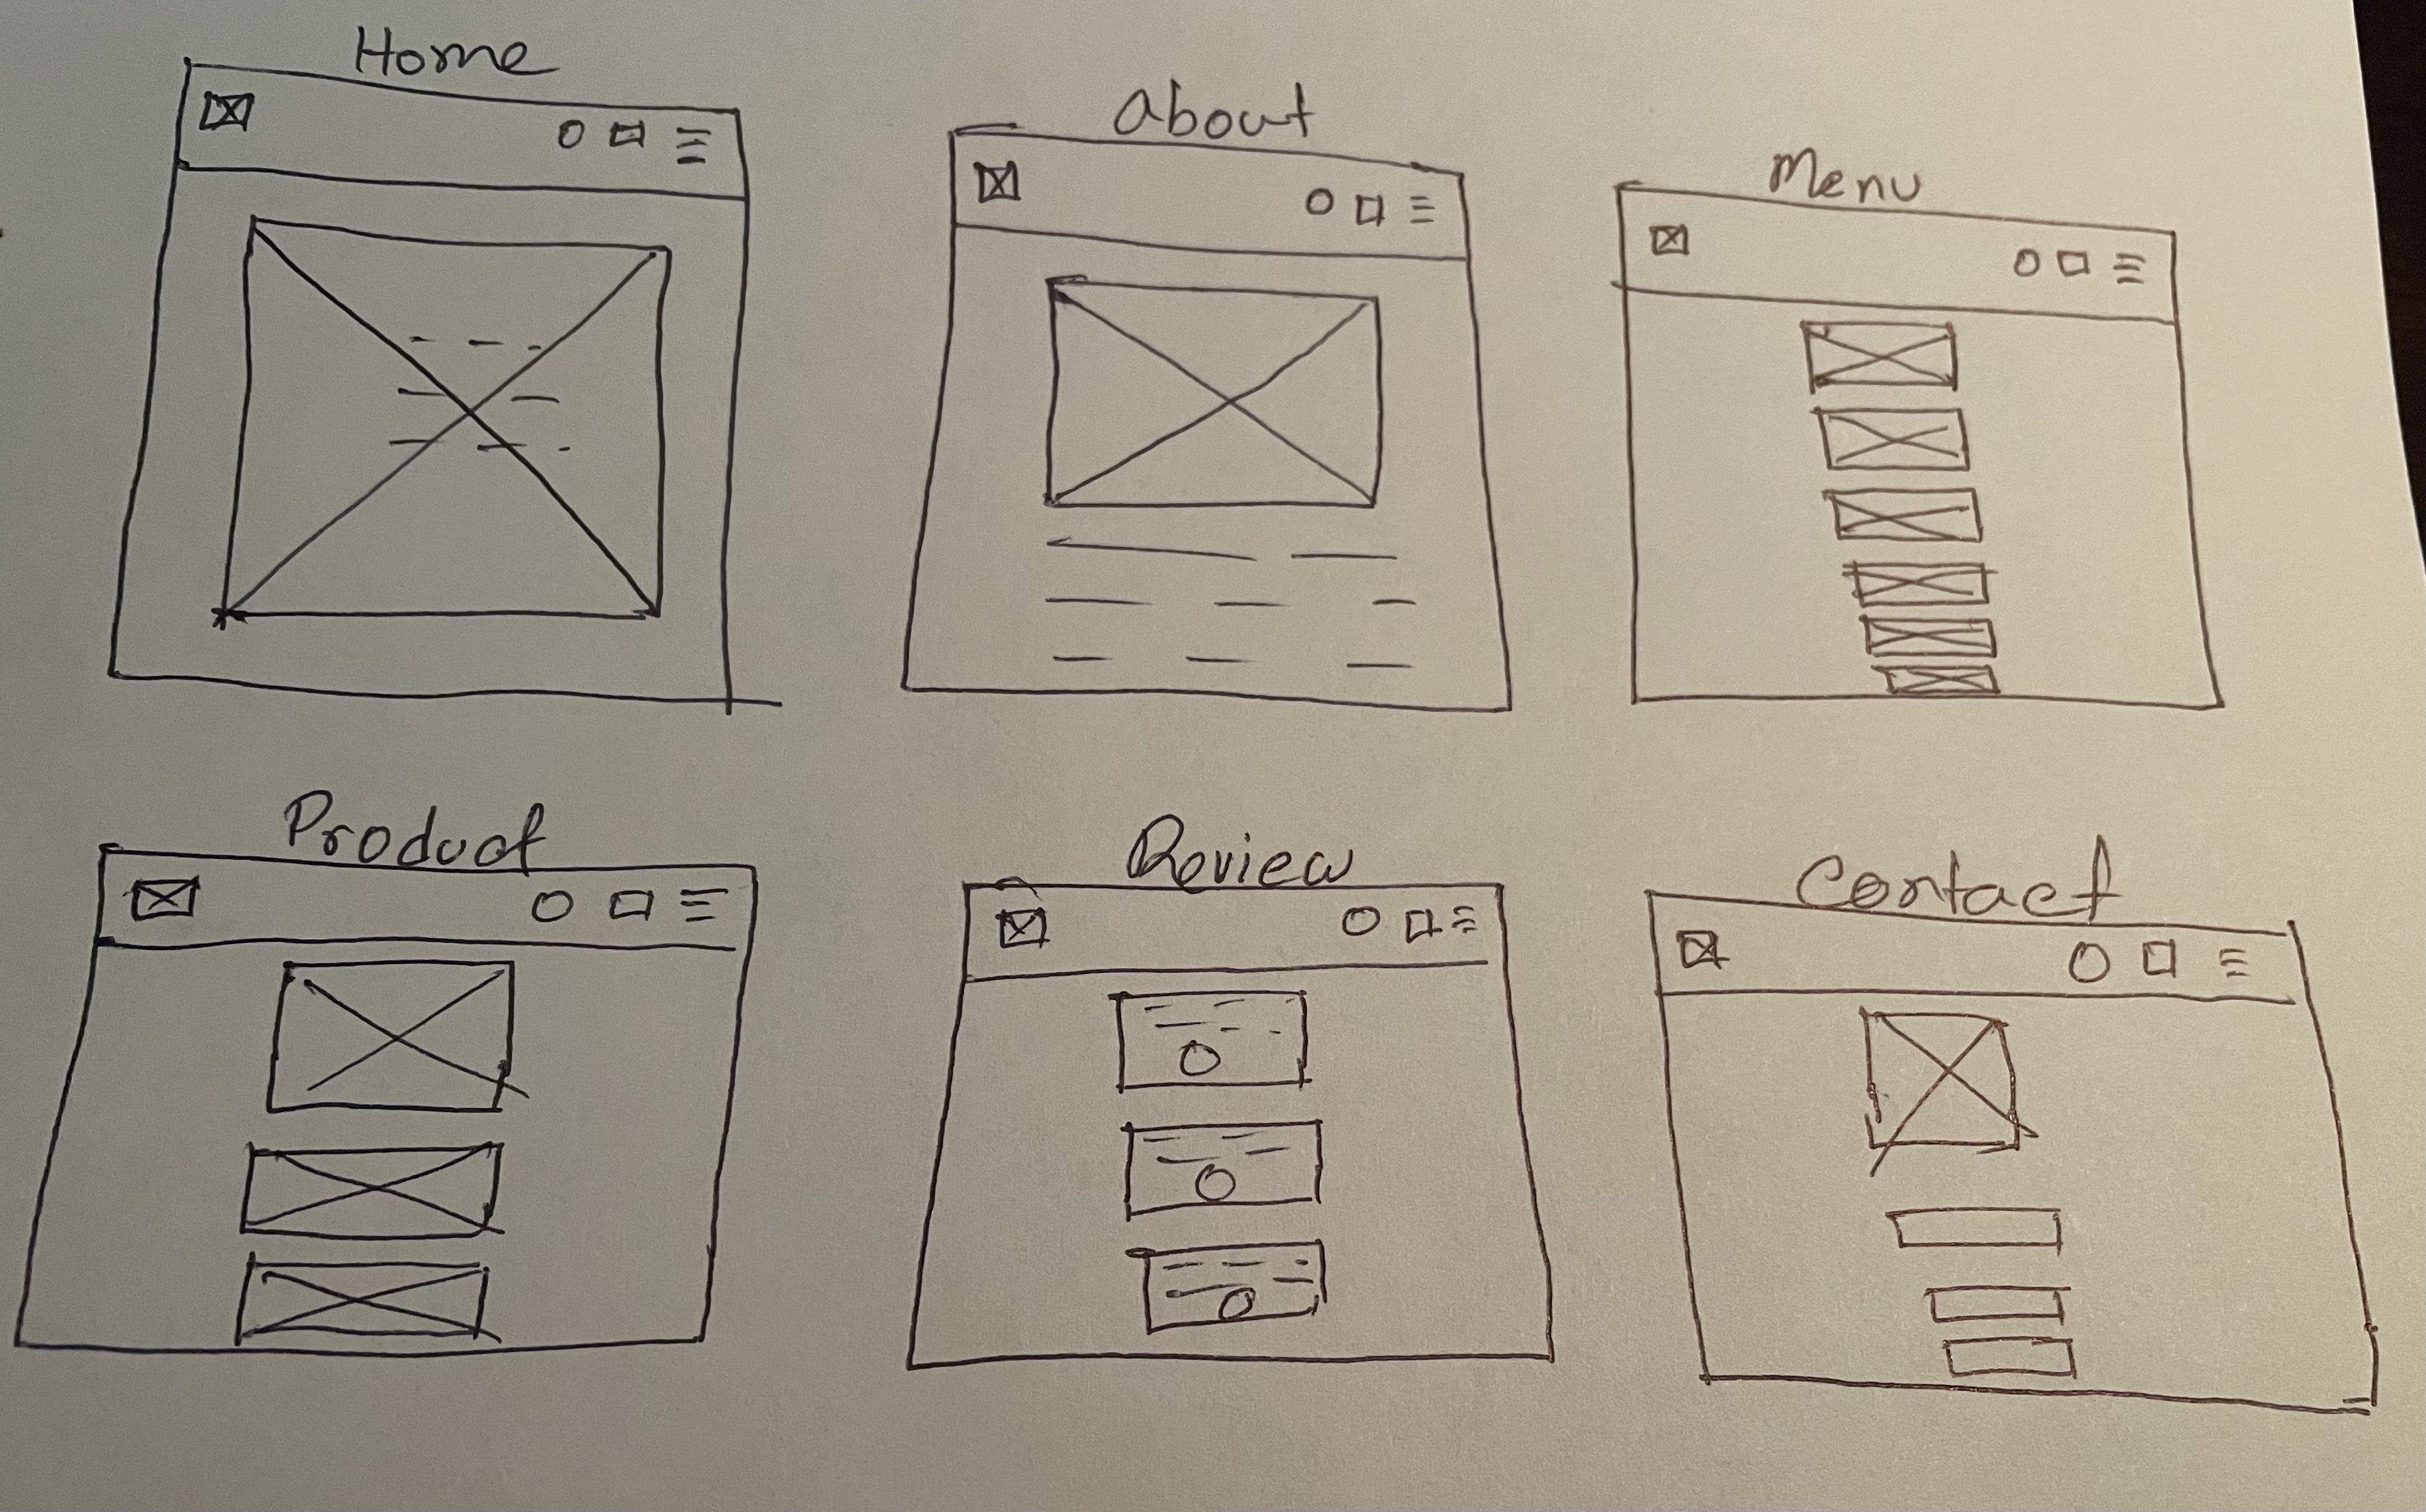 Home
About
Menu
Product
Review
Contact